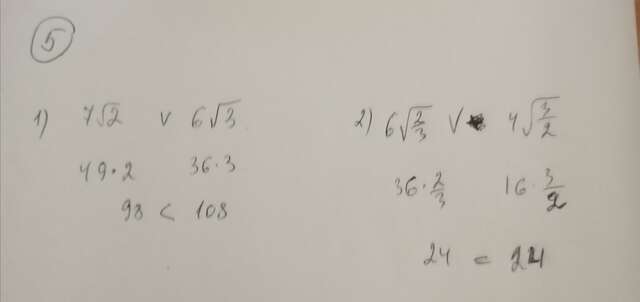 5
1) 7√2 v 6√3
49·2 36·3
98 < 108
2) 6√2/3 V 4√3/2
36·2/3 16·3/2
24 = 24